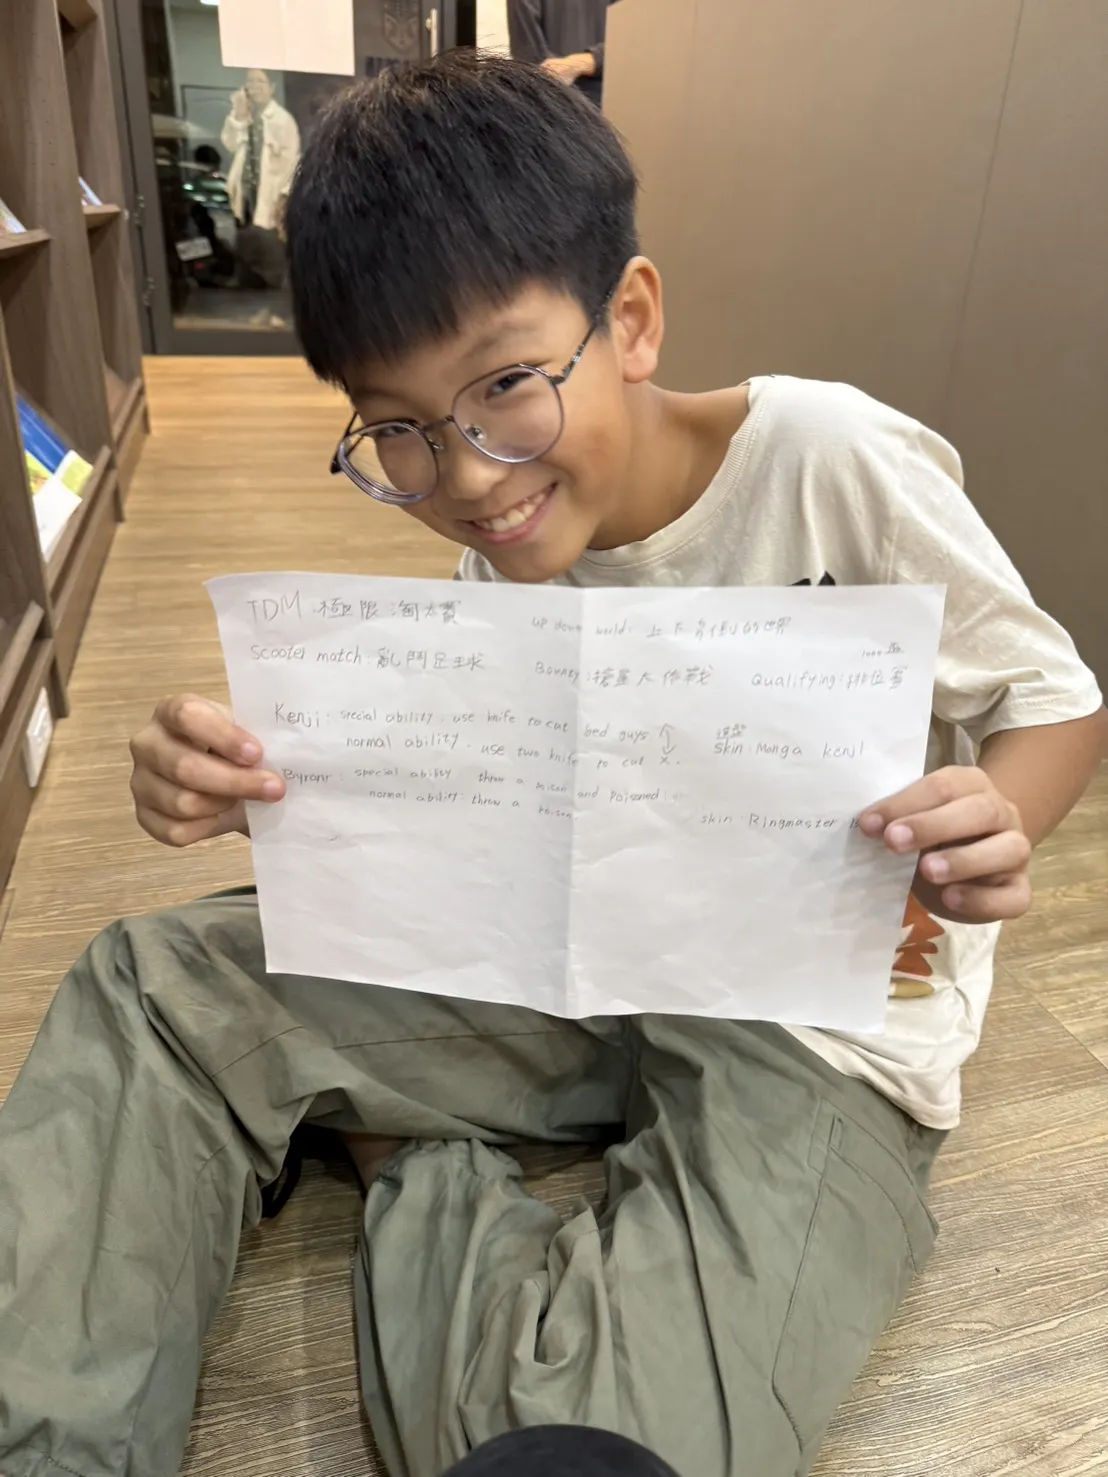 TDM:極限淘汰賽
up down world: 上下顛倒的世界
Scooter match:亂鬥足球
1000盃
Bounty:搶星大作戰
Qualifying:排位賽
Kenji: special ability: use knife to cut bed guys ↕
normal ability. use two knife to cut x.
造型
skin:Manga kenji
Byronr: special ability throw a poison and Poisoned:
normal ability: throw a poison.
skin:Ringmaster